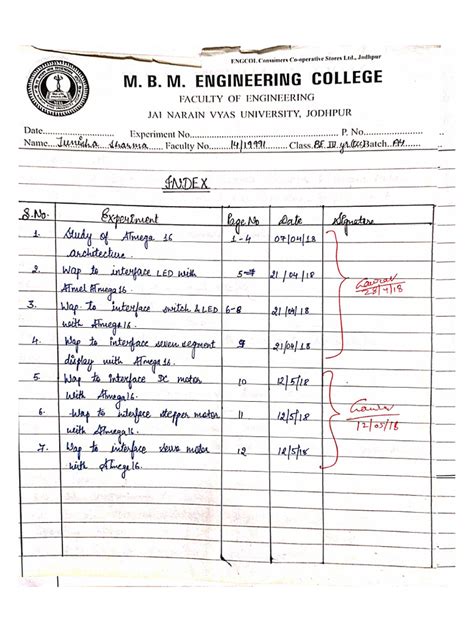 ENGCOL Consumers Co-operative Stores Ltd., Jodhpur
M. B. M. ENGINEERING COLLEGE
FACULTY OF ENGINEERING
JAI NARAIN VYAS UNIVERSITY, JODHPUR
Date Experiment No. P. No.
Name Sharma Faculty No. 14/19971 Class BE IV yr Batch
INDEX
S.No. Experiment Page No Date Signature
1. Study of ATmega 16 1-4 07/04/18
architecture.
2. Wap to interface LED with 5 21/04/18
Atmel Atmega16.
3. Wap to interface switch & LED 6-8 21/04/18
with Atmega16.
28/4/18
4. Wap to interface seven segment 9 21/04/18
display with ATmega16.
5. Wap to interface DC motor 10 12/5/18
with ATmega16.
6. Wap to interface stepper motor 11 12/5/18
with ATmega16.
12/05/18
7. Wap to interface servo motor 12 12/5/18
with ATmega16.